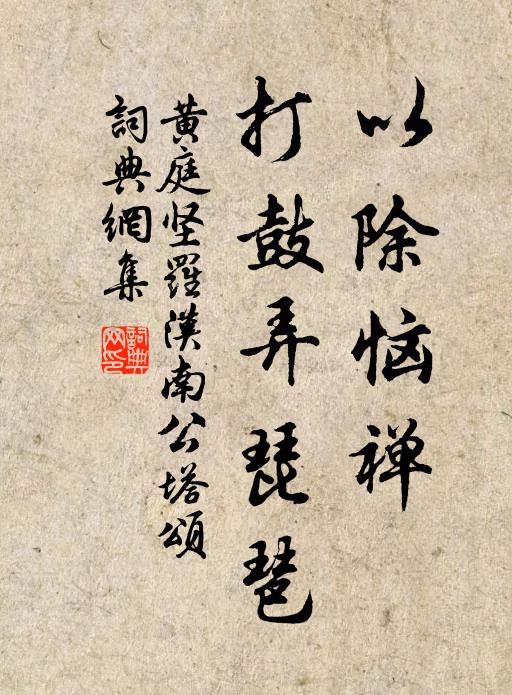 以除恼禅
打鼓弄琵琶
黄庭坚羅漢南公塔頌
詞典網集
詞典网印